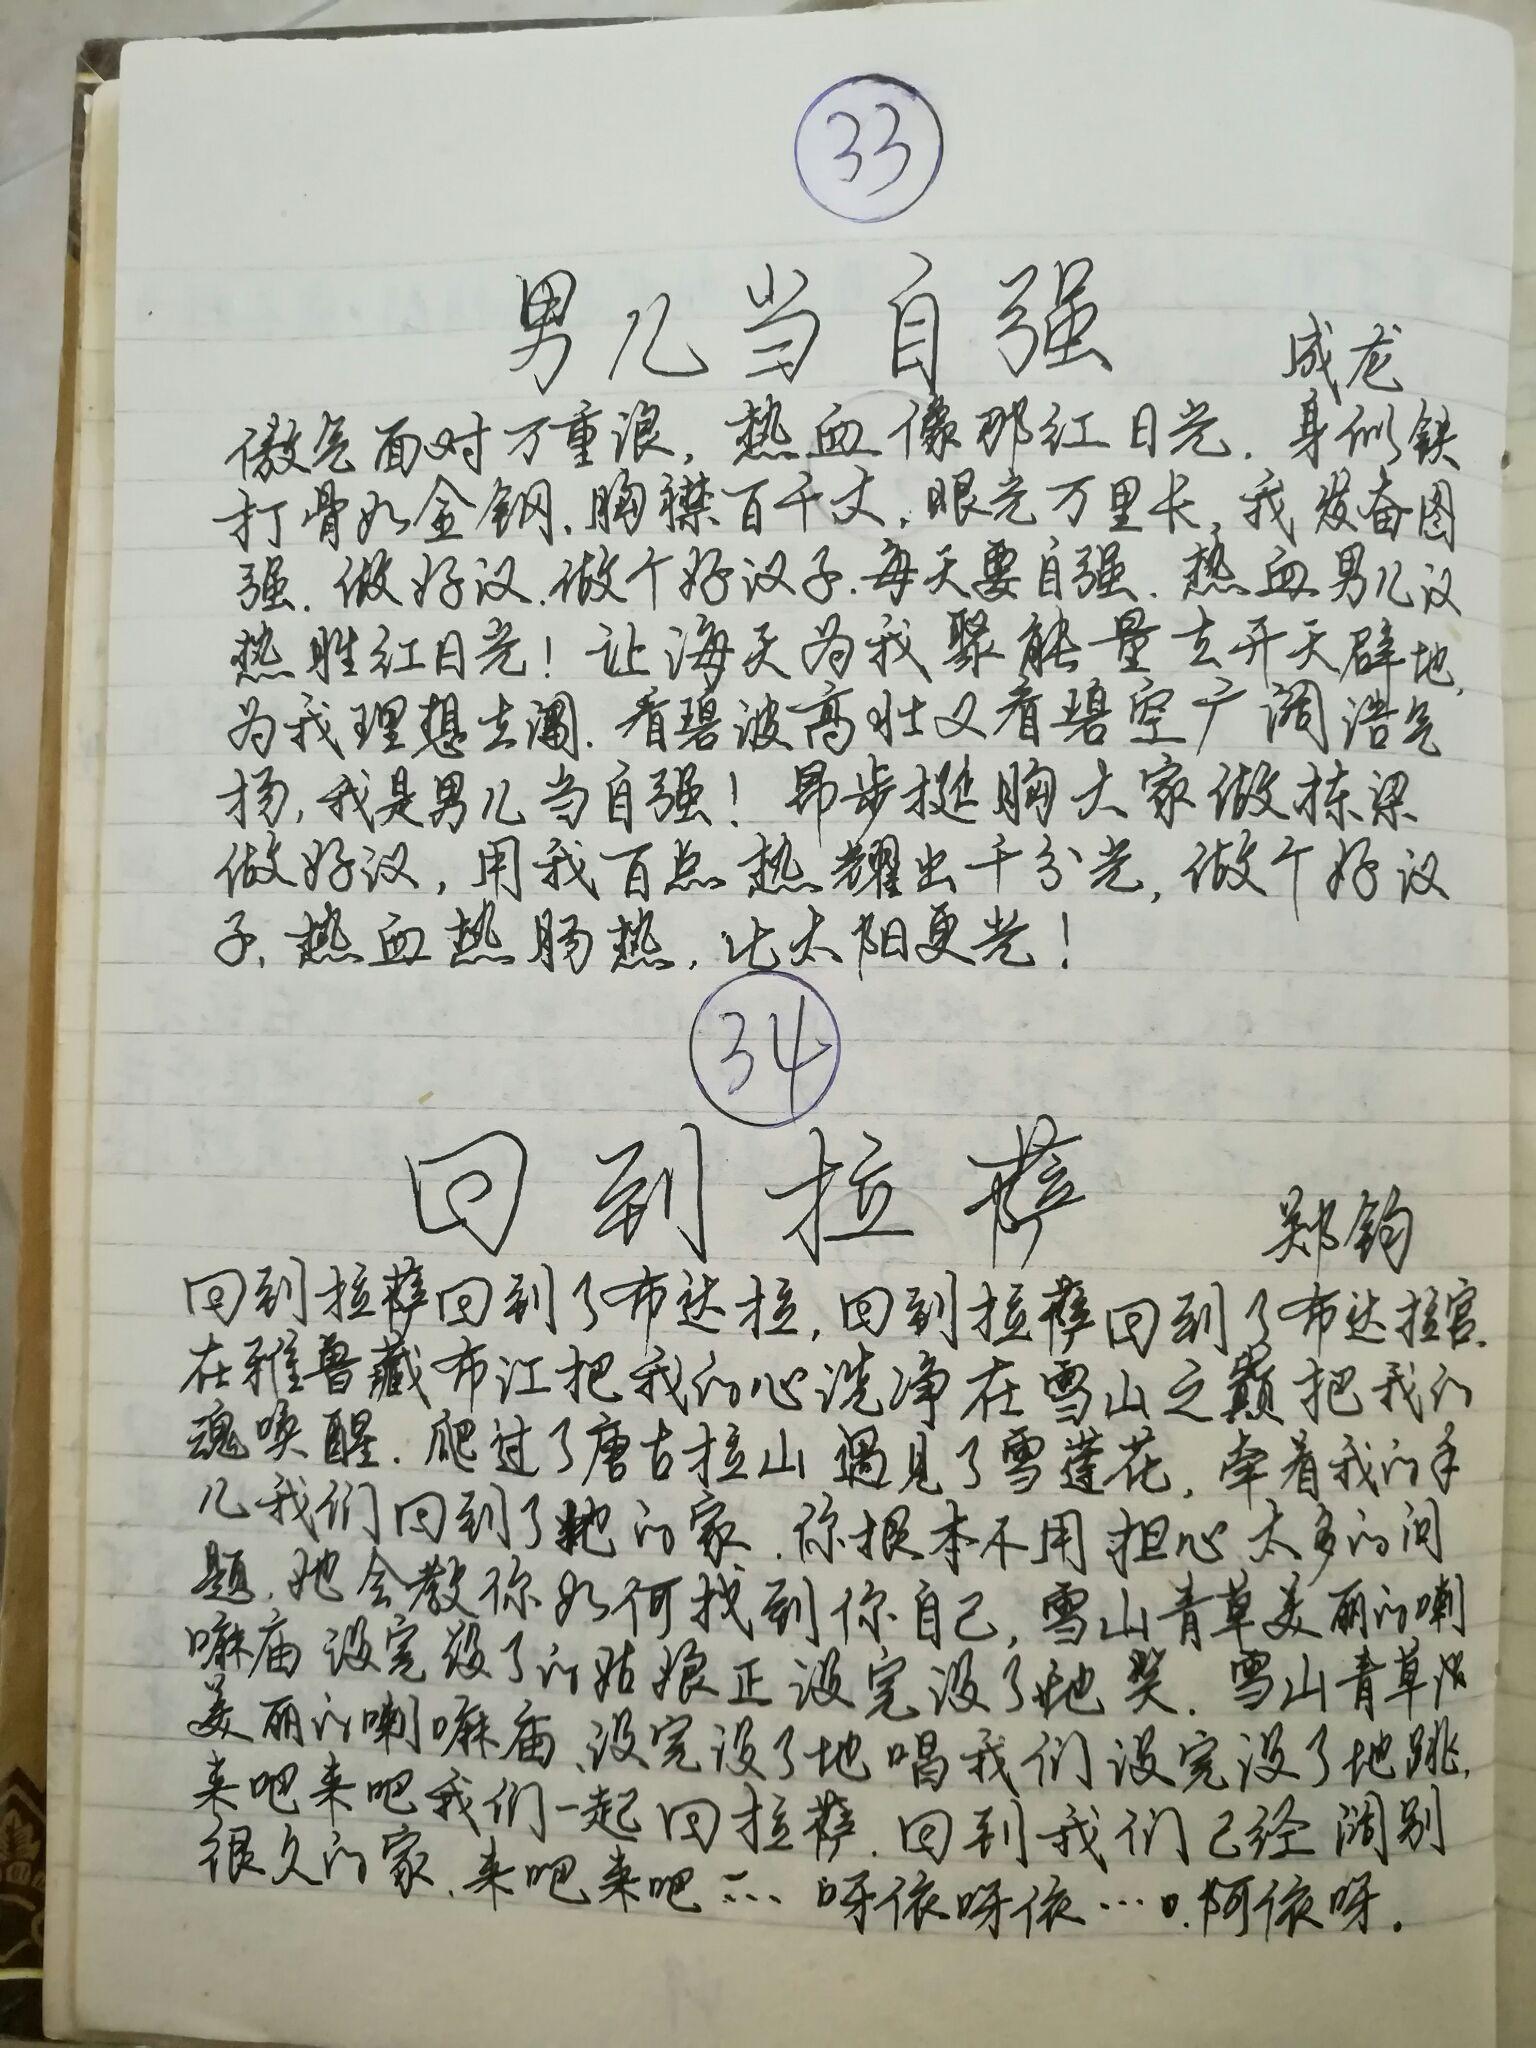 33
男儿当自强
成龙
傲气面对万重浪，热血像那红日光．身似铁
打骨如金钢．胸襟百千丈．眼光万里长，我发奋图
强．做好汉．做个好汉子．每天要自强．热血男儿汉
热胜红日光！让海天为我聚能量去开天辟地，
为我理想去闯．看碧波高壮又看碧空广阔浩气
扬，我是男儿当自强！昂步挺胸大家做栋梁
做好汉，用我百点热耀出千分光，做个好汉
子、热血热肠热，比太阳更光！
34
回到拉萨
郑钧
回到拉萨回到了布达拉，回到拉萨回到了布达拉宫．
在雅鲁藏布江把我的心洗净在雪山之巅把我的
魂唤醒．爬过了唐古拉山遇见了雪莲花，牵着我的手
儿我们回到了她的家．你根本不用担心太多的问
题．她会教你如何找到你自己，雪山青草美丽的喇
嘛庙没完没了的姑娘正没完没了地笑．雪山青草
美丽的喇嘛庙、没完没了地唱我们没完没了地跳，
来吧来吧我们一起回拉萨．回到我们已经阔别
很久的家、来吧来吧… 呀依呀依…．阿依呀．